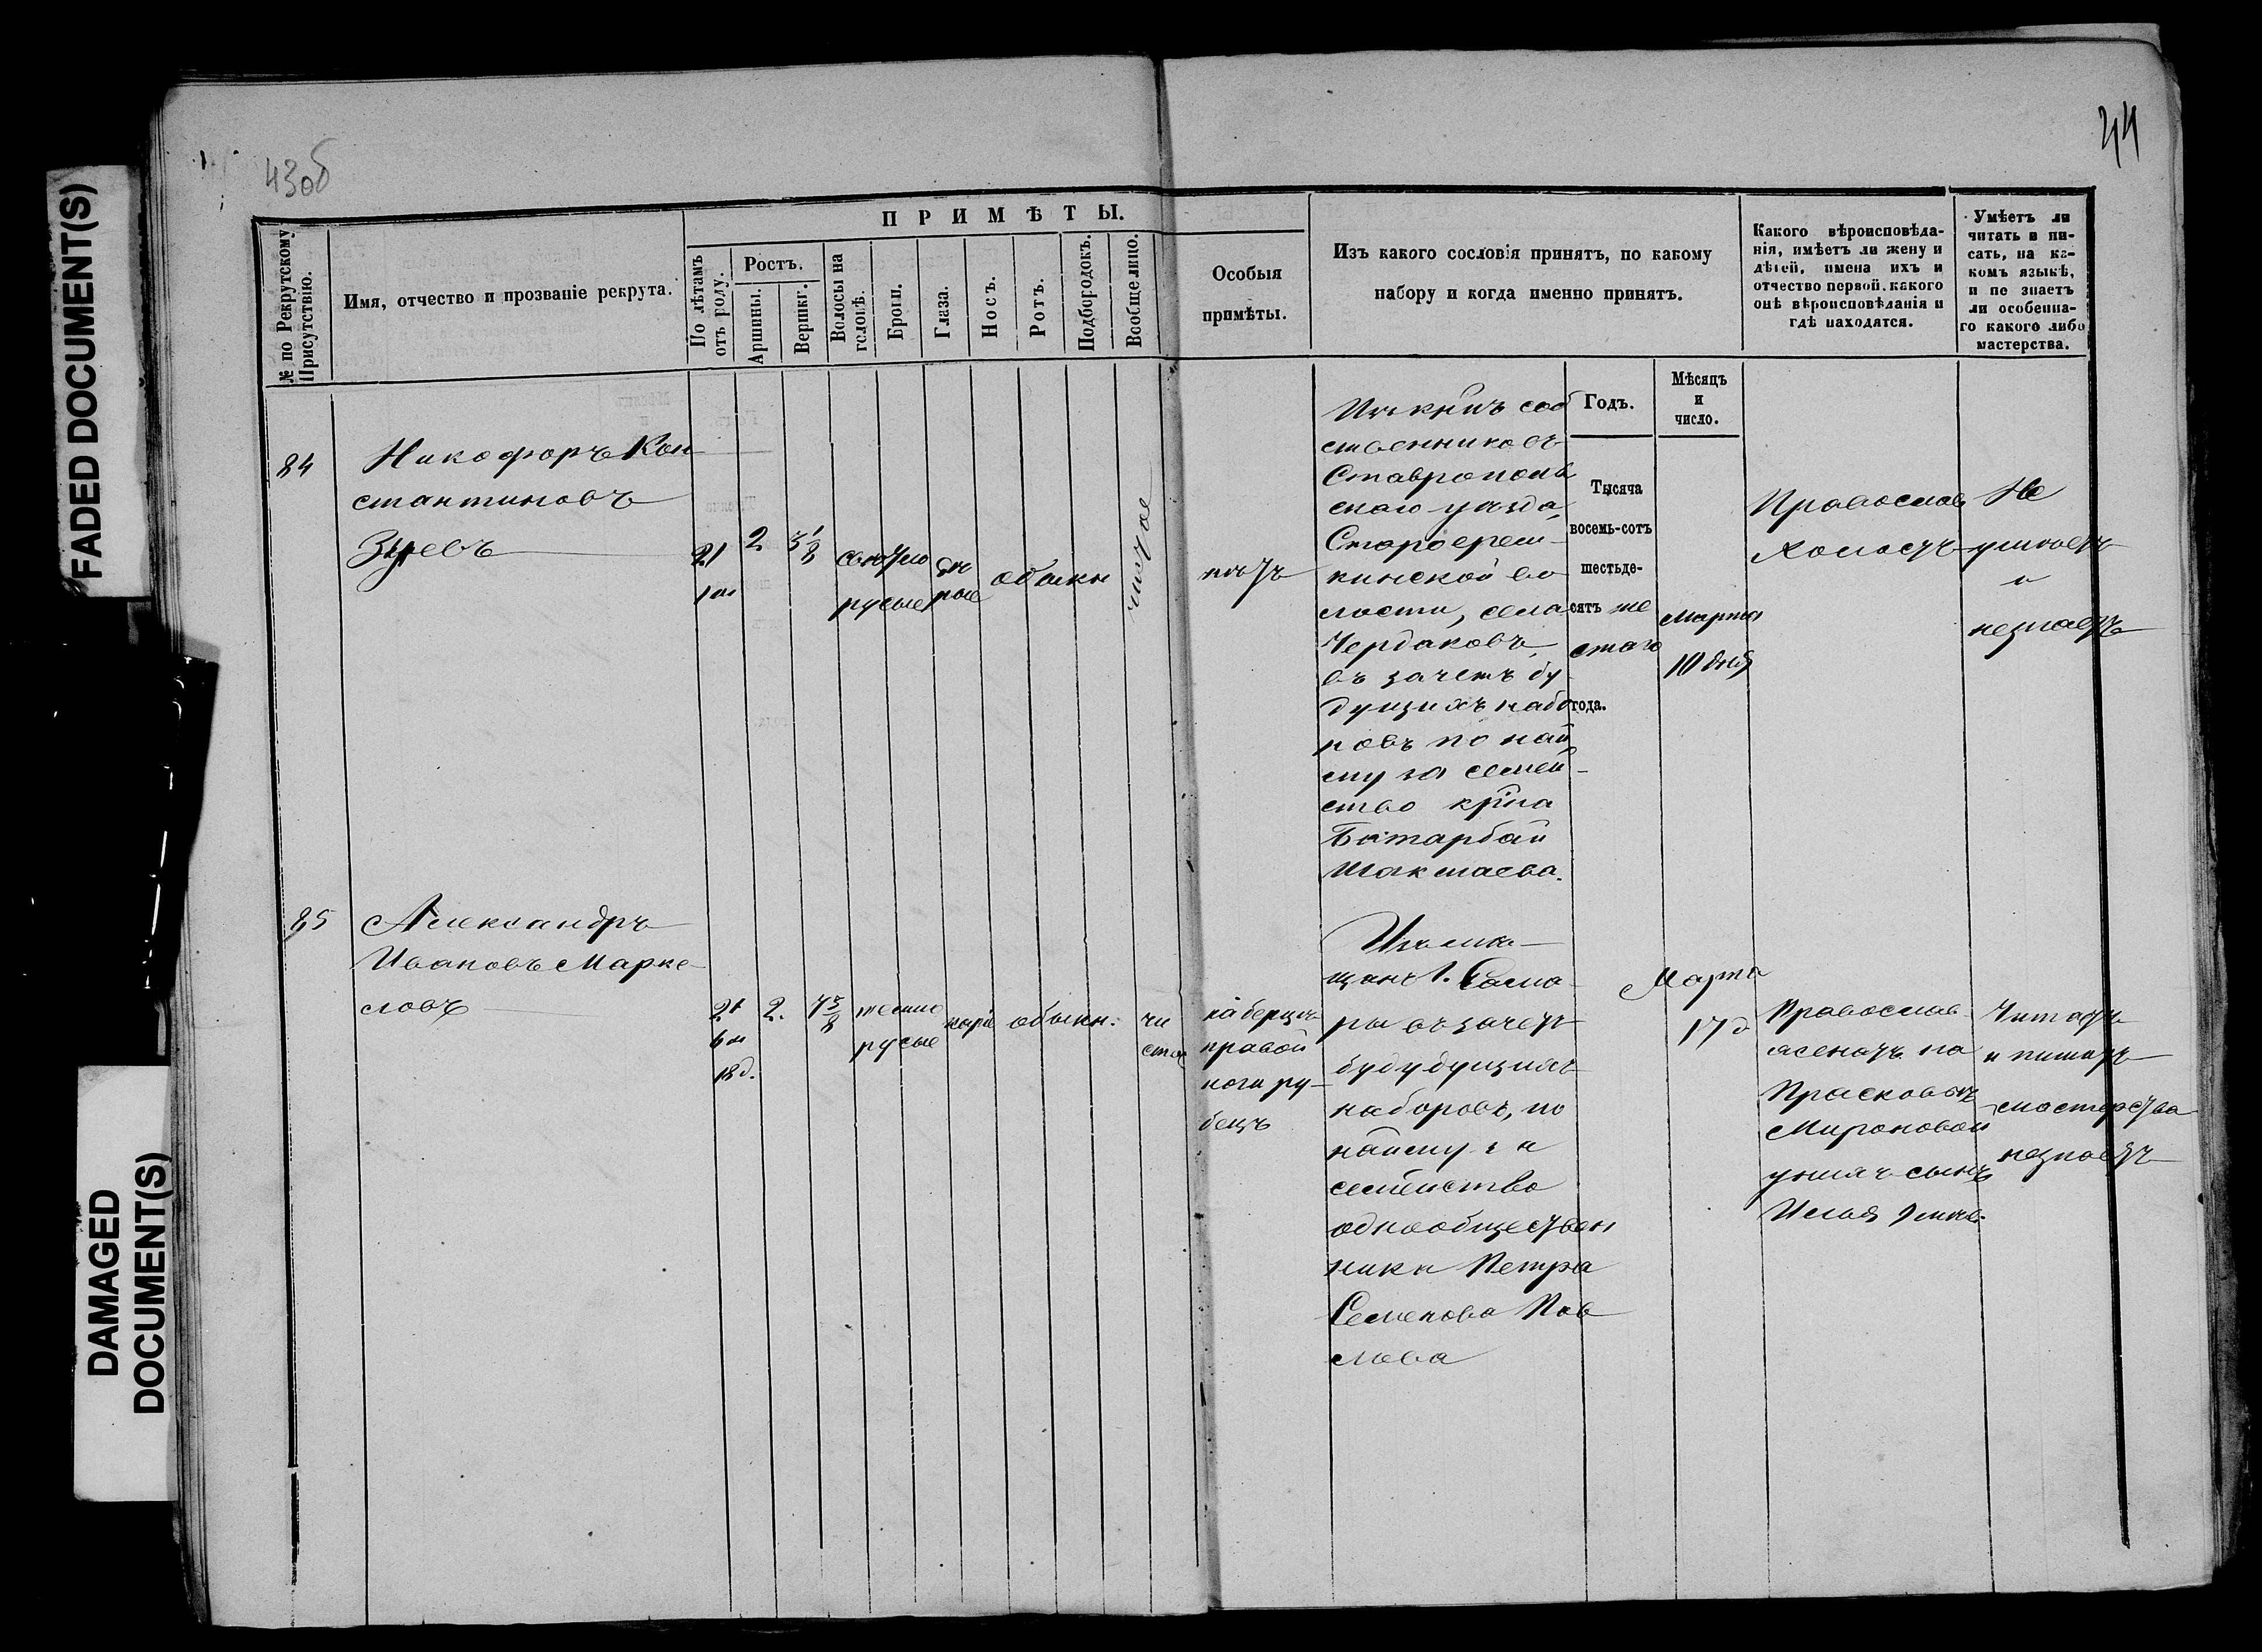 FADED DOCUMENT(S)
DAMAGED
DOCUMENT(S)
43об
44
ПРИМѢТЫ.
№ по Рекрутскому
Присутствію.
Имя, отчество и прозваніе рекрута.
По лѣтамъ
отъ роду.
Ростъ.
Аршины.
Вершки.
Волосы на
головѣ.
Брови.
Глаза.
Носъ.
Ротъ.
Подбородокъ.
Вообще лицо.
Особыя
примѣты.
Изъ какого сословія принятъ, по какому
набору и когда именно принятъ.
Какого вѣроисповѣда-
нія, имѣетъ ли жену и
дѣтей, имена ихъ и
отчество первой, какого
онѣ вѣроисповѣданія и
гдѣ находятся.
Умѣетъ ли
читать и пи-
сать, на ка-
комъ языкѣ,
и не знаетъ
ли особенна-
го какого либо
мастерства.
Годъ.
Мѣсяцъ
и
число.
84
Никофоръ Кон
стантиновъ
Зуевъ
21
1 м
2
3 1/8
свѣтло
русые
сѣ
рые
обыкн
чистое
нѣтъ
Изъ кр-нъ соб
ственниковъ
Ставрополь
скаго уѣзда,
Староереш-
кинской во
лости, села
Чердаковъ,
въ зачетъ бу
дущихъ набо
ровъ по най
му за семей-
ство кр-на
Шакмаева.
Тысяча
восемь-сотъ
шестьде-
сятъ ше
стаго
года.
Марта
10 дня
Православ
холостъ
Не
умѣетъ
и
незнаетъ
85
Александръ
Ивановъ Марке-
ловъ
21
6 м
18 д.
2.
7 5/8
темно
русые
каріе
обыкн.
чи
стое
на берцѣ
правой
ноги ру-
бецъ
Изъ мѣ-
щанъ г. Сама-
ры въ зачетъ
будубущихъ
наборовъ, по
найму за
семейство
однообществен
ника Петра
Семенова Пав
лова
Марта
17 д
Православ.
женатъ на
Прасковьѣ
Мироновой
у нихъ сынъ
Илья
Читаетъ
и пишетъ
мастерства
незнаетъ